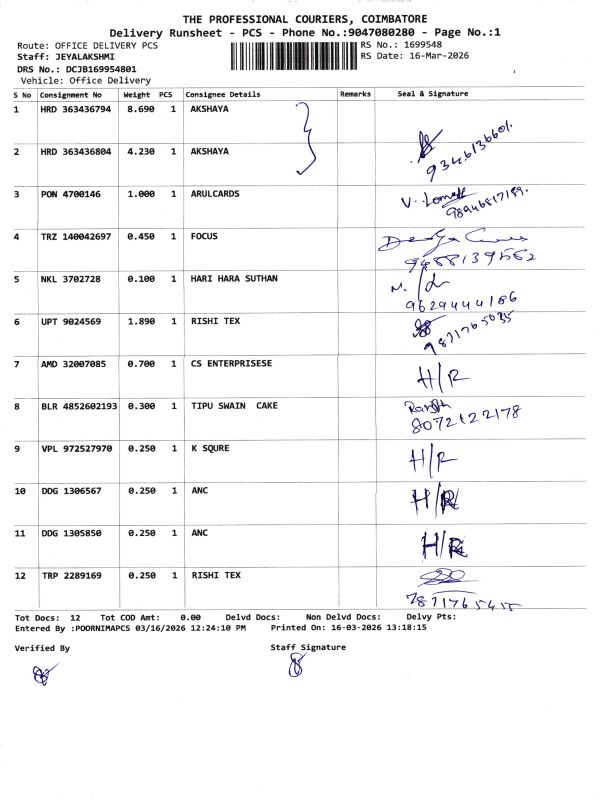 THE PROFESSIONAL COURIERS, COIMBATORE
Delivery Runsheet - PCS - Phone No.:9047080280 - Page No.:1
Route: OFFICE DELIVERY PCS RS No.: 1699548
Staff: JEYALAKSHMI RS Date: 16-Mar-2026
DRS No.: DCJB169954801
Vehicle: Office Delivery
S No Consignment No Weight PCS Consignee Details Remarks Seal & Signature
1 HRD 363436794 8.690 1 AKSHAYA
2 HRD 363436804 4.230 1 AKSHAYA
3 PON 4700146 1.000 1 ARULCARDS
98946817189.
4 TRZ 140042697 0.450 1 FOCUS
9488139582
5 NKL 3702728 0.100 1 HARI HARA SUTHAN
9629444186
6 UPT 9024569 1.890 1 RISHI TEX
7 AMD 32007085 0.700 1 CS ENTERPRISESE H/R
8 BLR 4852602193 0.300 1 TIPU SWAIN CAKE
8072122178
9 VPL 972527970 0.250 1 K SQURE H/R
10 DDG 1306567 0.250 1 ANC H/R
11 DDG 1305850 0.250 1 ANC H/R
12 TRP 2289169 0.250 1 RISHI TEX
Tot Docs: 12 Tot COD Amt: 0.00 Delvd Docs: Non Delvd Docs: Delvy Pts:
Entered By :POORNIMAPCS 03/16/2026 12:24:10 PM Printed On: 16-03-2026 13:18:15
Verified By Staff Signature